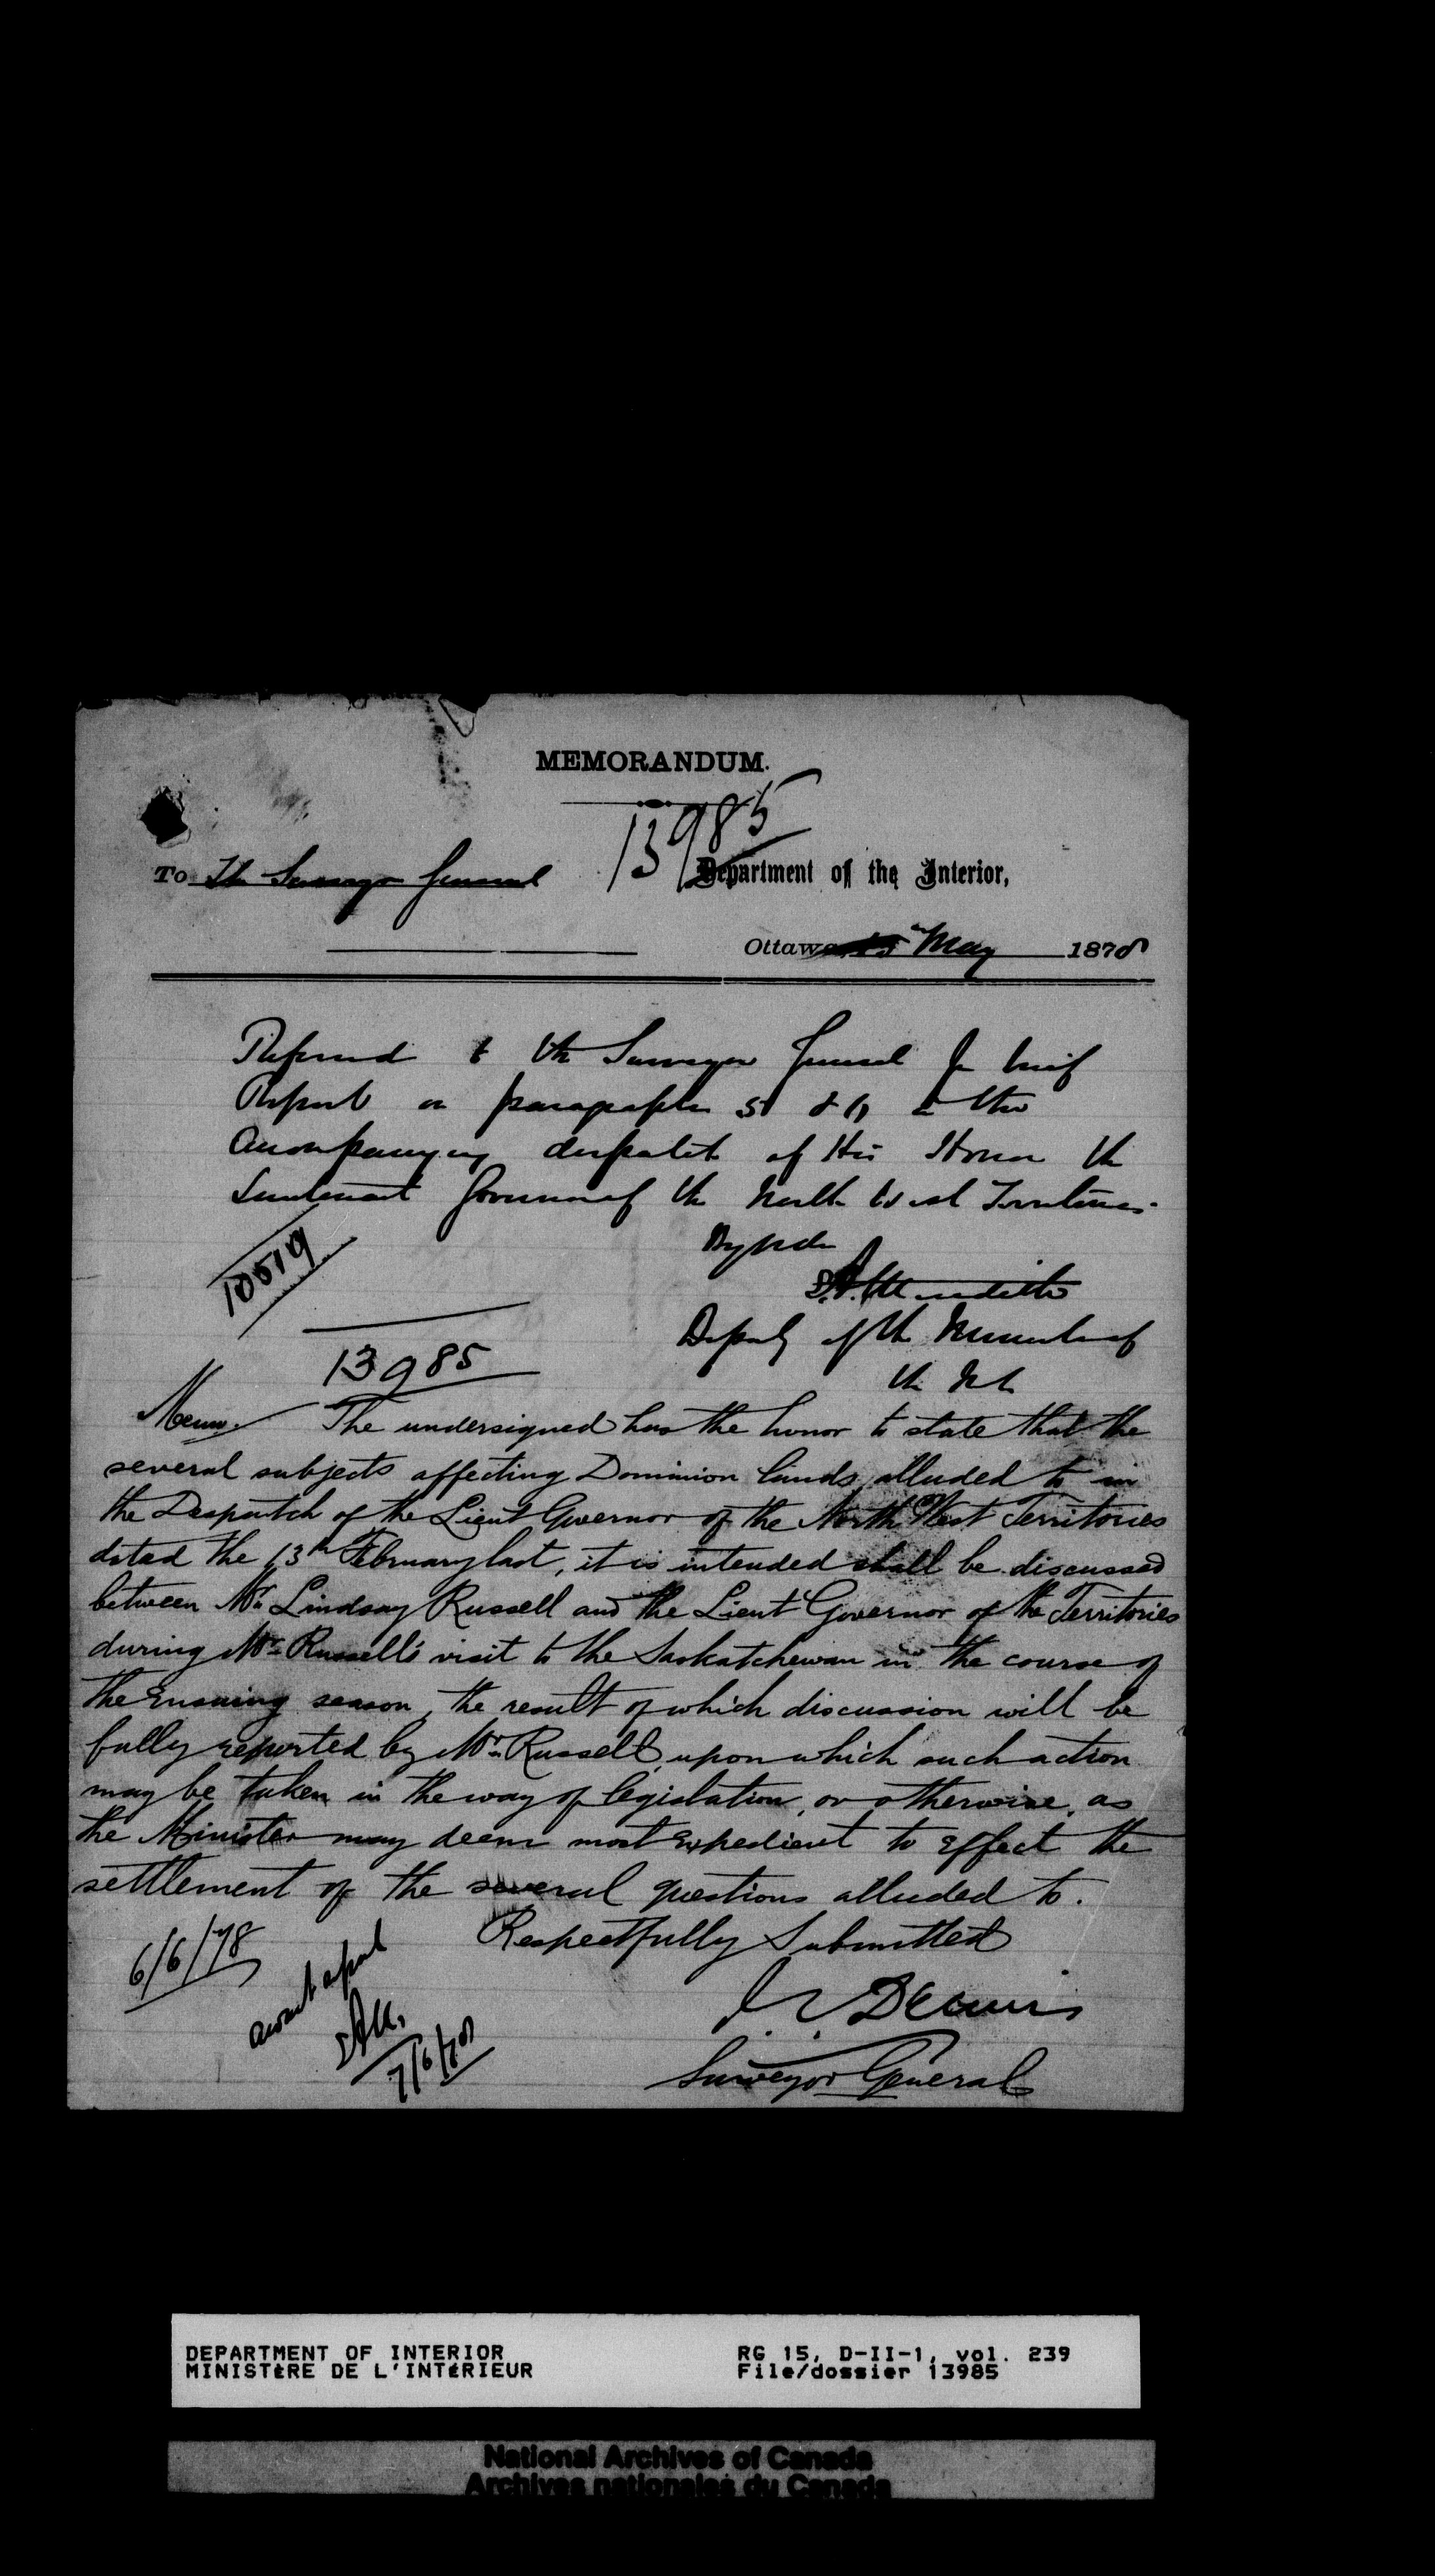 MEMORANDUM.
13985
To The Surveyor General
Department of the Interior,
Ottawa May 1878
Referred to the Surveyor General for brief
Report on paragraphs 5 & 6 in the
accompanying despatch of His Honor the
Lieutenant Governor of the North West Territories.
By order
E. A. Meredith
Deputy of the Minister of
the Int
10519
13985
Memo. The undersigned has the honor to state that the
several subjects affecting Dominion lands alluded to in
the Despatch of the Lieut Governor of the North West Territories
dated the 13th February last, it is intended shall be discussed
between Mr. Lindsay Russell and the Lieut Governor of the Territories
during Mr. Russell's visit to the Saskatchewan in the course of
the Ensuing season, the result of which discussion will be
fully reported by Mr. Russell, upon which such action
may be taken in the way of legislation, or otherwise, as
the Minister may deem most Expedient to effect the
settlement of the several questions alluded to.
Respectfully Submitted
6/6/78
J. S. Dennis
Surveyor General
await
7/6/78
DEPARTMENT OF INTERIOR
MINISTÈRE DE L'INTÉRIEUR
RG 15, D-II-1, vol. 239
File/dossier 13985
National Archives of Canada
Archives nationales du Canada